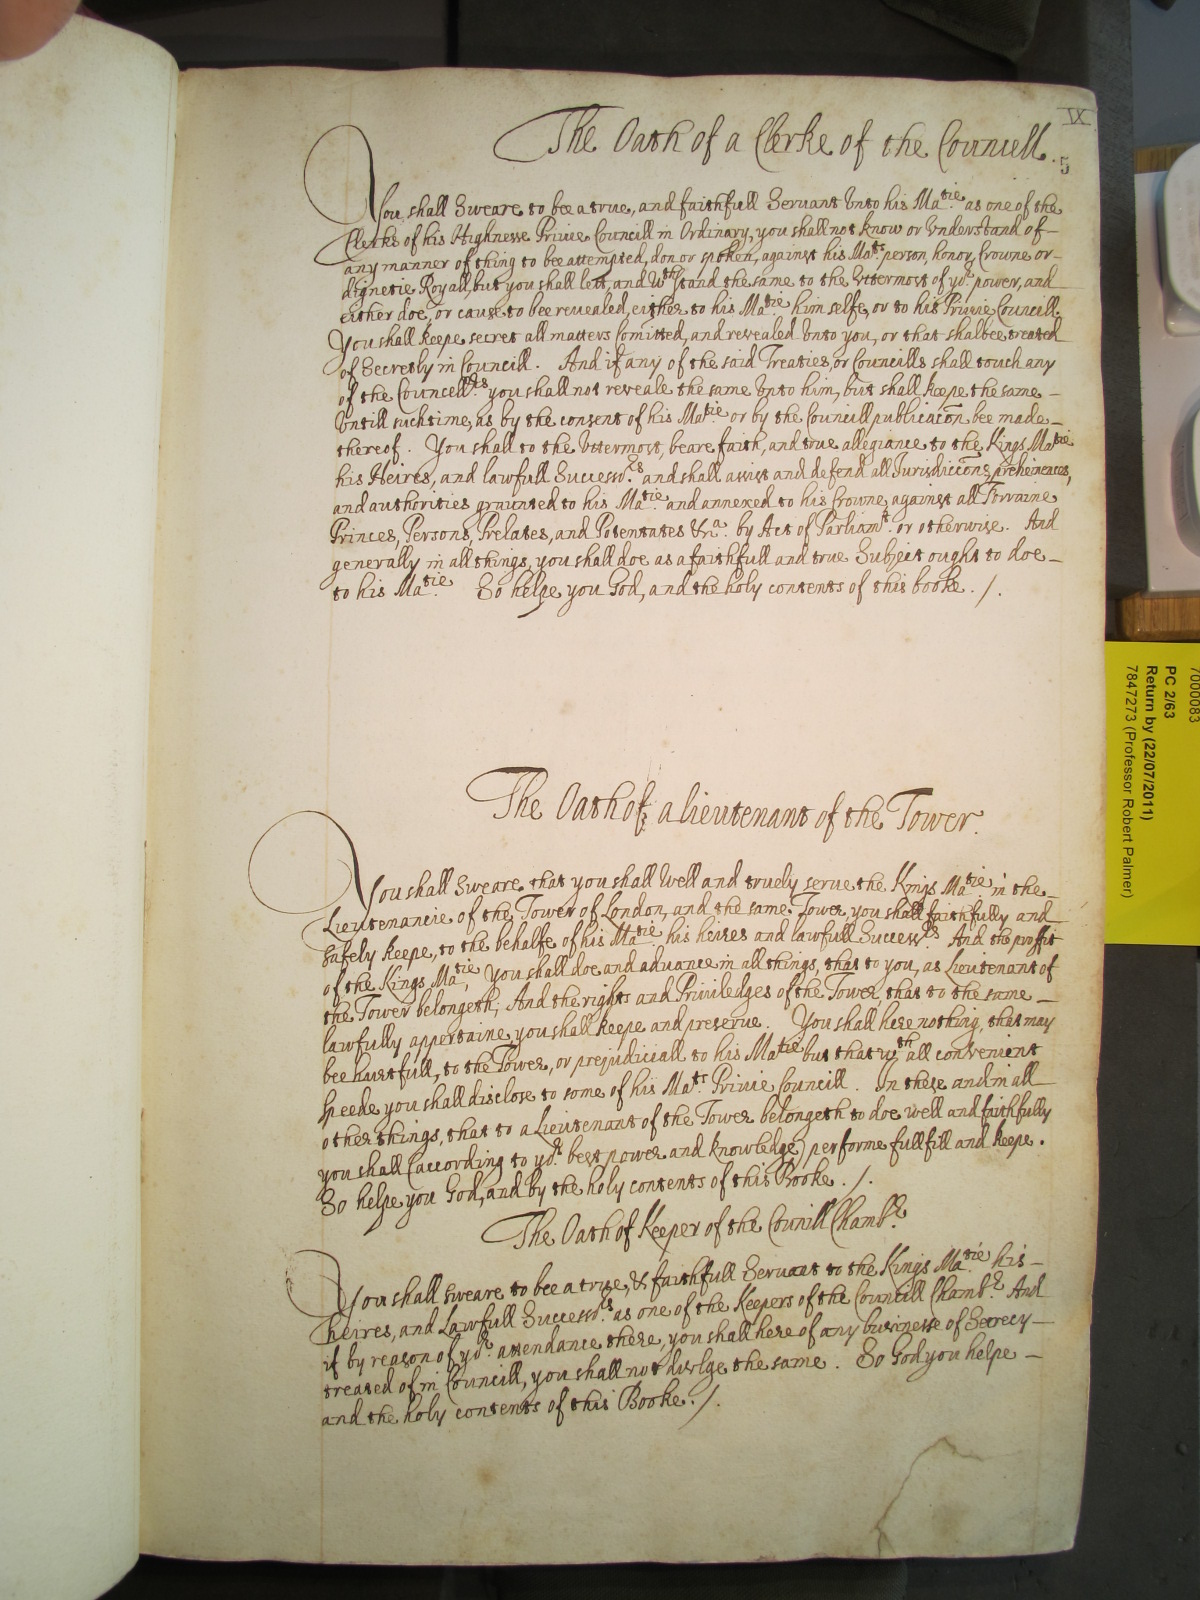 IX
The Oath of a Clerke of the Councell.
5
You shall Sweare to bee a true, and faithfull Servant Unto his Ma:tie as one of the
Clerks of his Highnesse Privie Councill in Ordinary, you shall not know or Understand of
any manner of thing to bee attempted, don or spoken, against his Ma:ts person, honor, Crowne or
dignetie Royall, but you shall lett, and wthstand the same to the Uttermost of yor: power, and
either doe, or cause to bee revealed, either to his Ma:tie him selfe, or to his Privie Councill.
You shall keepe secret all matters Comitted, and revealed Unto you, or that shalbee treated
of Secretly in Councill. And if any of the said Treaties, or Councills shall touch any
of the Councellors: you shall not reveale the same Unto him, but shall keepe the same
Untill such time, as by the consent of his Ma:tie or by the Councill publicacon bee made
thereof. You shall to the Uttermost, beare faith, and true allegiance to the Kings Ma:tie
his Heires, and lawfull Successors: and shall assist and defend all Jurisdiccons, preheinences,
and authorities graunted to his Ma:tie and annexed to his Crowne, against all Forraine
Princes, Persons, Prelates, and Potentates &ca. by Act of Parliamt: or otherwise. And
generally in all things, you shall doe as a faithfull and true Subject ought to doe
to his Ma:tie So helpe you God, and the holy contents of this booke. /.
The Oath of a Lieutenant of the Tower.
You shall Sweare that you shall Well and truely serve the Kings Ma:tie in the
Lieutenancie of the Tower of London, and the same Tower, you shall faithfully and
safely keepe, to the behalfe of his Ma:tie, his heires and lawfull Successors: And the proffit
of the Kings Ma:tie, You shall doe and advance in all things, that to you, as Lieutenant of
the Tower belongeth; And the rights and Priviledges of the Tower, that to the same
lawfully appertaine, you shall keepe and preserve. You shall here nothing, that may
bee hurtfull, to the Tower, or prejudiciall to his Ma:tie but that wth all convenient
speede you shall disclose to some of his Ma:ts Privie Councill. In these and in all
other things, that to a Lieutenant of the Tower belongeth to doe well and faithfully
you shall (according to yor: best power and knowledge) performe fullfill and keepe.
So helpe you God, and by the holy contents of this Booke. /.
The Oath of Keeper of the Councill Chambr:
You shall sweare to bee a true, & faithfull Servant to the Kings Ma:tie his
heires, and Lawfull Successors: as one of the Keepers of the Councill Chambr: And
if by reason of yor: attendance there, you shall here of any businesse of Secrecy
treated of in Councill, you shall not divlge the same. So God you helpe
and the holy contents of this Booke. /.
7000083
PC 2/63
Return by (22/07/2011)
7847273 (Professor Robert Palmer)